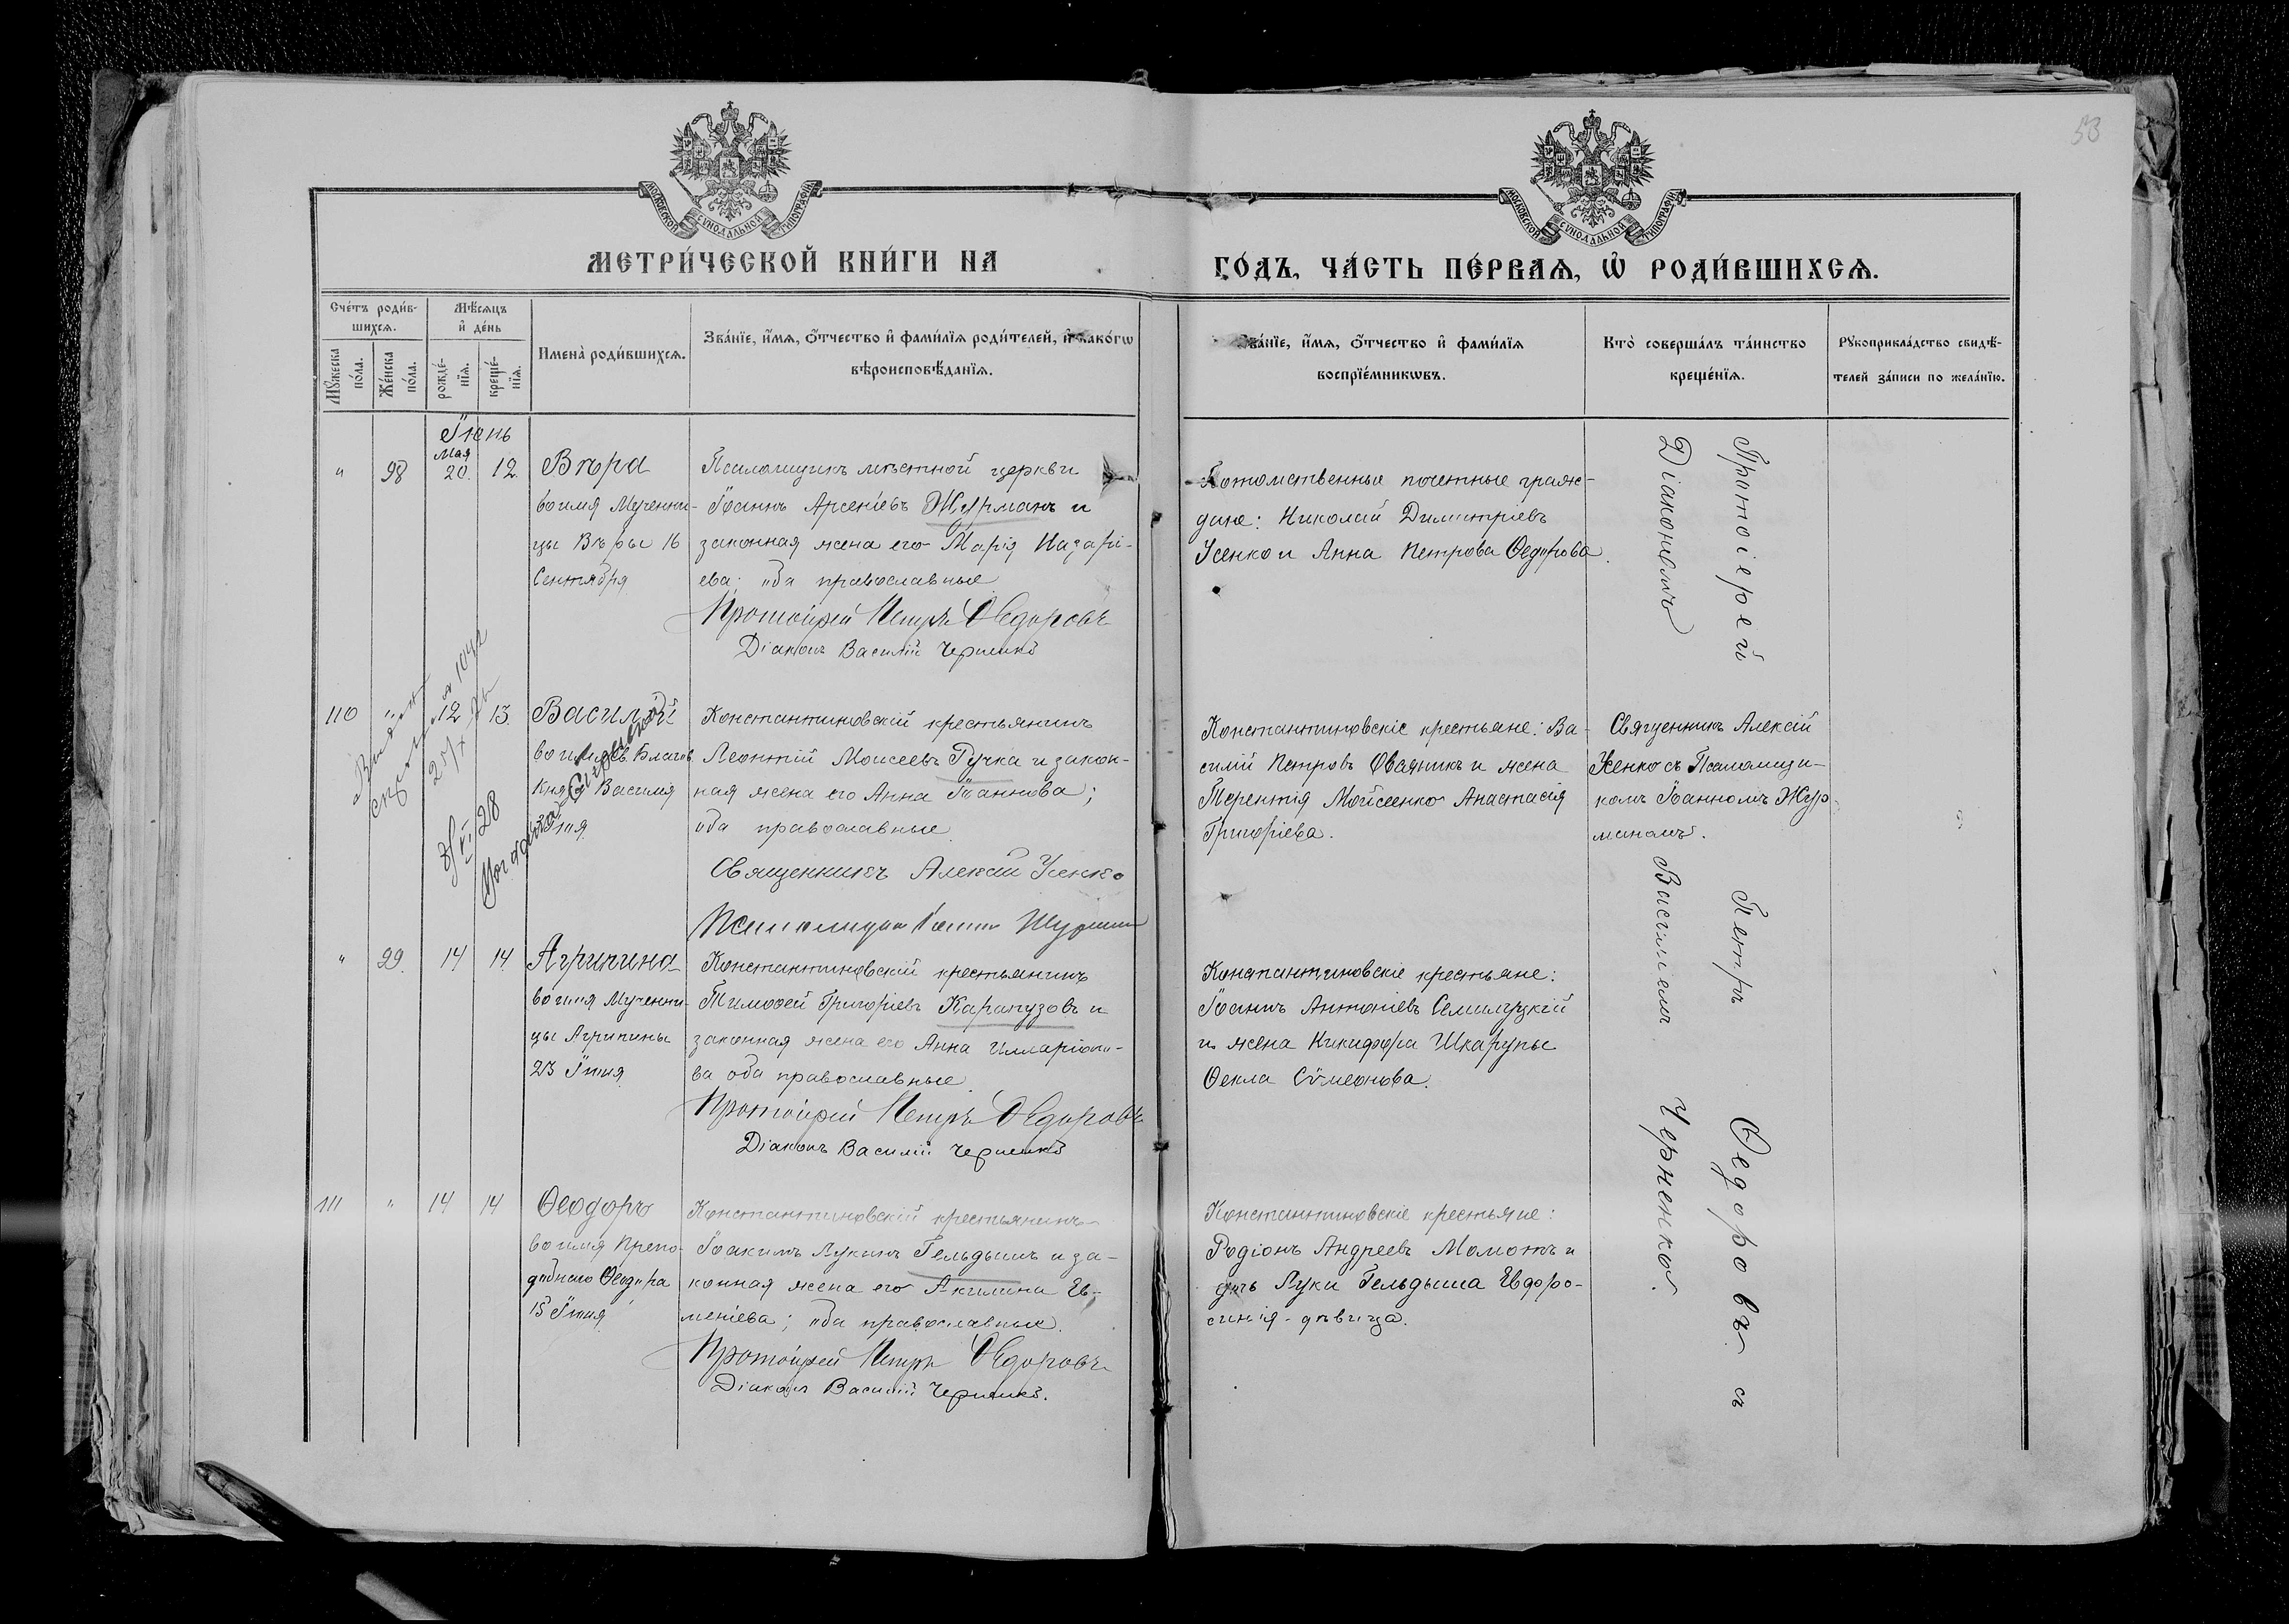 53
МОСКОВСКОЙ СУНОДАЛЬНОЙ ТИПОГРАФІИ
МОСКОВСКОЙ СУНОДАЛЬНОЙ ТИПОГРАФІИ
МЕТРИ́ЧЕСКОЙ КНИ́ГИ НА
ГО́ДЪ, ЧА́СТЬ ПЕ́РВАѦ, Ѡ҆ РОДИ́ВШИХСѦ.
Сче́тъ роди́в-
шихсѧ.
Мꙋ́жеска
по́ла.
Же́нска
по́ла.
Мѣ́сѧцъ
и҆ де́нь
рожде́-
нїѧ.
креще́-
нїѧ.
Имена̀ роди́вшихсѧ.
Зва́нїе, и҆́мѧ, ѻ҆́тчество и҆ фами́лїѧ роди́телей, и҆ како́гѡ
вѣроисповѣ́данїѧ.
Зва́нїе, и҆́мѧ, ѻ҆́тчество и҆ фами́лїѧ
воспрїе́мникѡвъ.
Кто̀ соверша́лъ та́инство
креще́нїѧ.
Рꙋкоприкла́дство свидѣ́-
телей за́писи по жела́нїю.
Іюнь
" 98 Мая 20. 12. Вѣра
во имя Мучени-
цы Вѣры 16
Сентября
Псаломщикъ мѣстной церкви
Іоаннъ Арсеніевъ Журманъ и
законная жена его Марія Назарі-
ева; оба православные
Протоіерей Петръ Ѳедоровъ
Діаконъ Василій Черненко
Потомственные почетные граж-
дане: Николай Димитріевъ
Усенко и Анна Петрова Ѳедорова.
Протоіерей Петръ Ѳедоровъ съ
Діакономъ Василіемъ Черненко.
110 " 12 13. Василій
во имя Св. Благов.
Князя Василія
Іюля
25/X
Константиновскій крестьянинъ
Леонтій Моисеевъ Гучка и закон-
ная жена его Анна Іоаннова;
оба православные
Священникъ Алексій Усенко
Псаломщикъ Іоаннъ Журманъ
Константиновскіе крестьяне: Ва-
силій Петровъ Овалникъ и жена
Терентія Мойсеенко Анастасія
Григоріева.
Священникъ Алексій
Усенко съ Псаломщи-
комъ Іоанномъ Жур-
маномъ.
" 99. 14 14 Агрипина
во имя Мучени-
цы Агрипины
23 Іюня
Константиновскій крестьянинъ
Тимофей Григоріевъ Карапузовъ и
законная жена его Анна Илларіоно-
ва оба православные.
Протоіерей Петръ Ѳедоровъ
Діаконъ Василій Черненко
Константиновскіе крестьяне:
Іоаннъ Антоніевъ Семилуцкій
и жена Никифора Шкарупы
Ѳекла Сѵмеонова.
111 " 14 14 Ѳеодоръ
во имя Препо-
добнаго Ѳеодора
15 Іюня
Константиновскій крестьянинъ
Іоакимъ Лукинъ Гельдышъ и за-
конная жена его Акилина Ев-
меніева; оба православные.
Протоіерей Петръ Ѳедоровъ
Діаконъ Василій Черненко.
Константиновскіе крестьяне:
Родіонъ Андреевъ Момотъ и
дочь Луки Гельдыша Евфро-
синія - дѣвица.